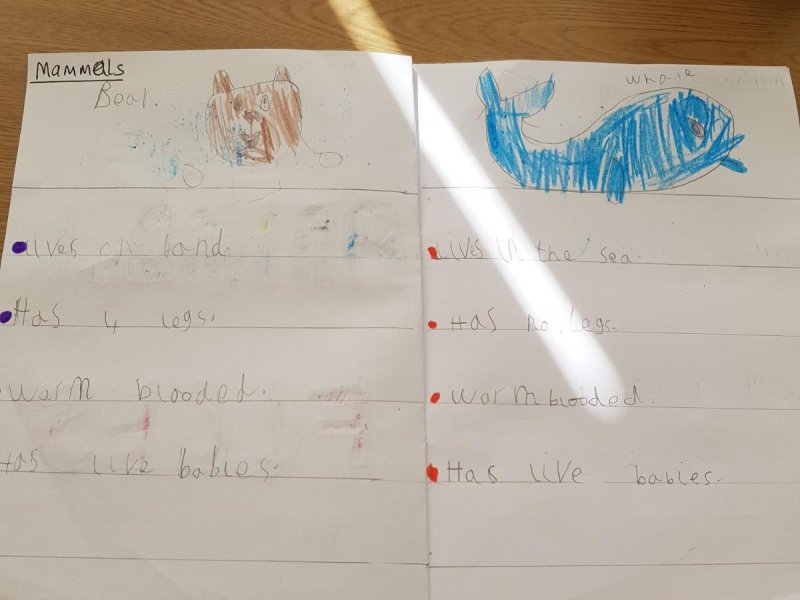 Mammals
Bear.
Lives on land.
Has 4 legs.
warm blooded.
Has live babies.
whale
Lives in the sea.
Has no legs.
warm blooded.
Has live babies.